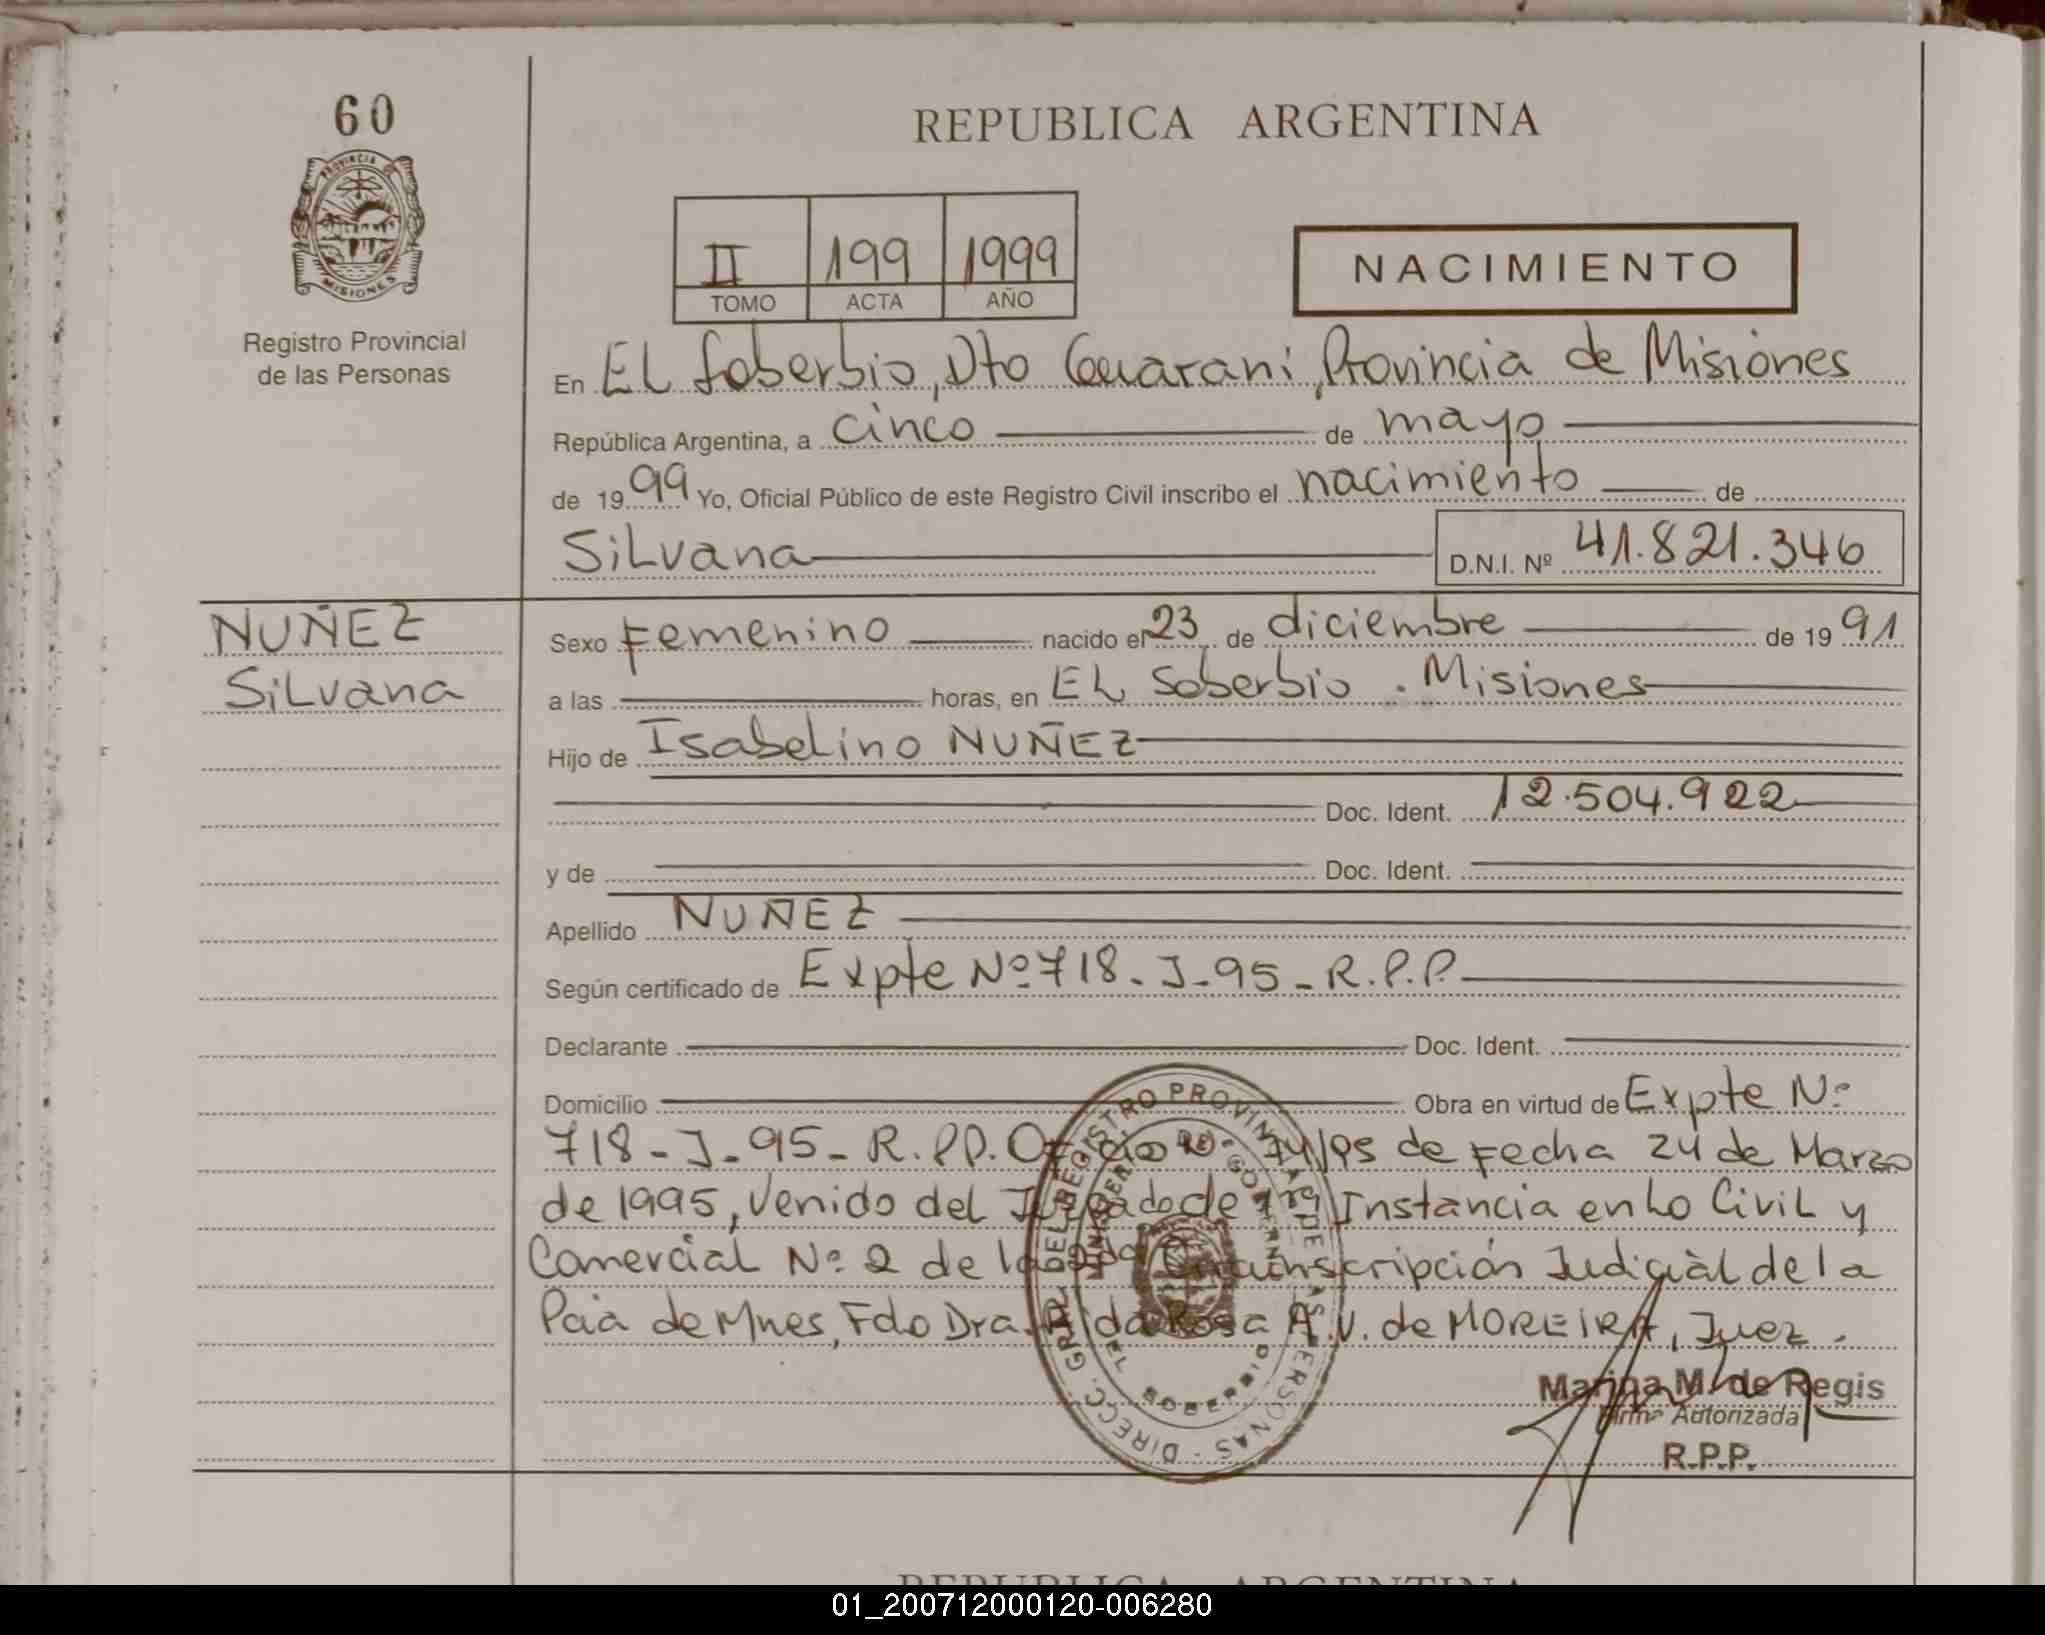 60
REPUBLICA ARGENTINA
PROVINCIA
MISIONES
Registro Provincial
de las Personas
II 199 1999
TOMO ACTA AÑO
NACIMIENTO
En EL Soberbio, Dto Guarani, Provincia de Misiones
República Argentina, a cinco de mayo
de 1999 Yo, Oficial Público de este Registro Civil inscribo el nacimiento de
Silvana
D.N.I. Nº 41.821.346
NUÑEZ
Silvana
Sexo Femenino nacido el 23 de diciembre de 1991
a las horas, en EL Soberbio . Misiones
Hijo de Isabelino NUÑEZ
Doc. Ident. 12.504.922
y de Doc. Ident.
Apellido NUÑEZ
Según certificado de Expte Nº 718-J-95-R.P.P.
Declarante Doc. Ident.
Domicilio Obra en virtud de Expte Nº
718-J-95-R.P.P. de Fecha 24 de Marzo
de 1995, Venido del Juzgado de 1ra Instancia en Lo Civil y
Comercial Nº 2 de la Circunscripción Judicial de la
Pcia de Mnes, Fdo Dra. Rosa A.V. de MOREIRA, Juez.
DIRECC. GRAL. DEL REGISTRO PROVINCIAL DE LAS PERSONAS
EL SOBERBIO
Marina M. de Regis
Firma Autorizada
R.P.P.
REPUBLICA ARGENTINA
01_200712000120-006280